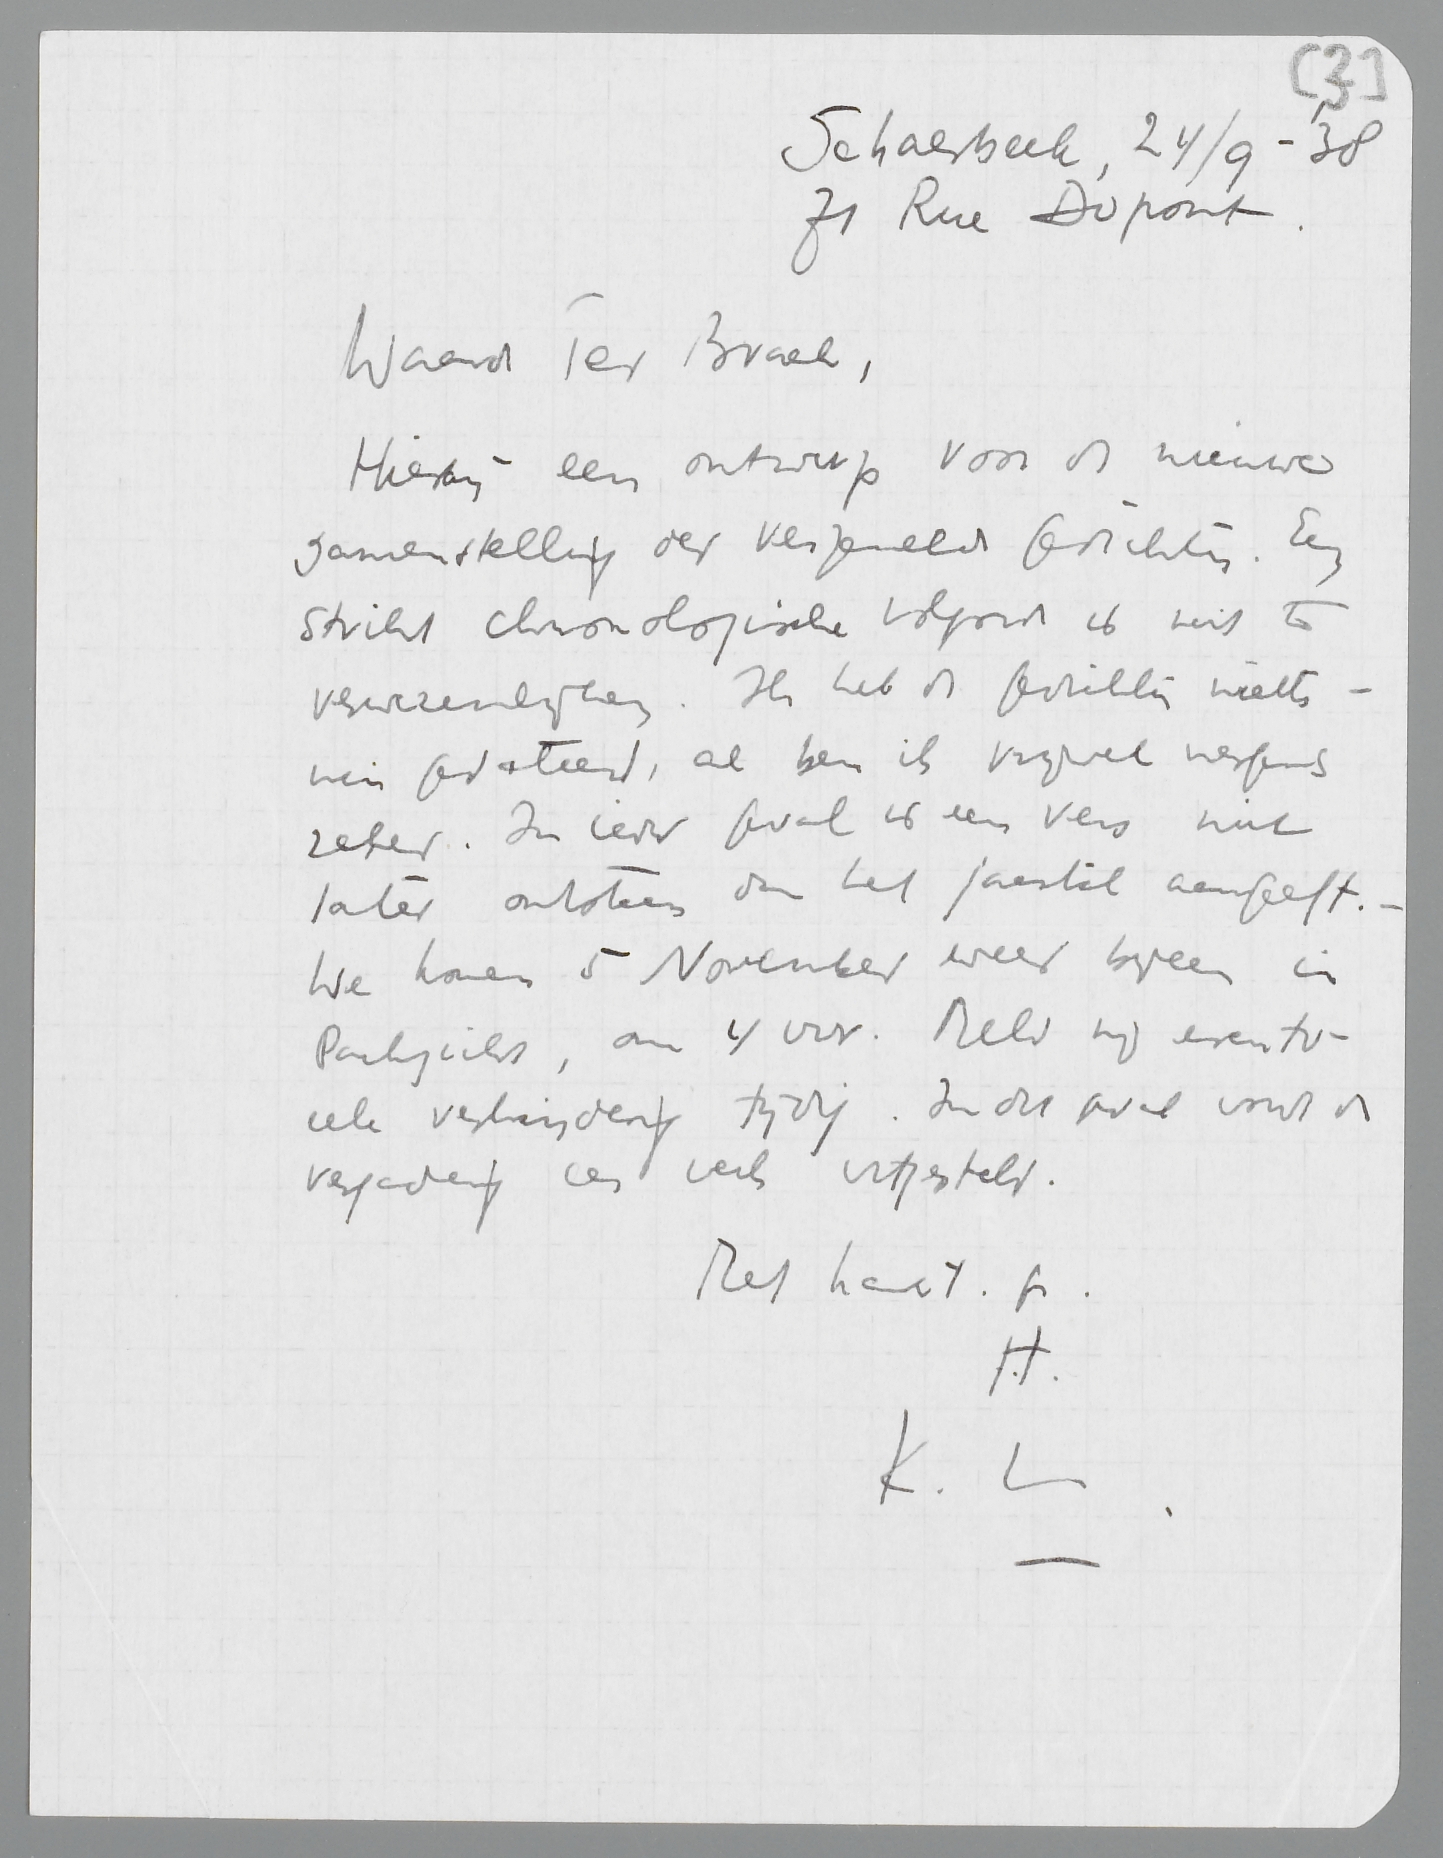 [3]
Schaerbeek, 24/9-'38
71 Rue Dupont.
Waarde Ter Braak,
Hierbij een ontwerp voor de nieuwe
samenstelling der verzamelde gedichten. Een
strikt chronologische volgorde is niet te
verwezenlijken. Ik heb de gedichten niette-
min gedateerd, al ben ik vrijwel nergens
zeker. In ieder geval is een vers niet
later ontstaan dan het jaartal aangeeft.-
We komen 5 November weer bijeen in
Parkzicht, om 4 uur. Meld mij eventu-
eele verhindering tijdig. In dit geval wordt de
vergadering een week uitgesteld.
Met hart. gr.
H.
K. L